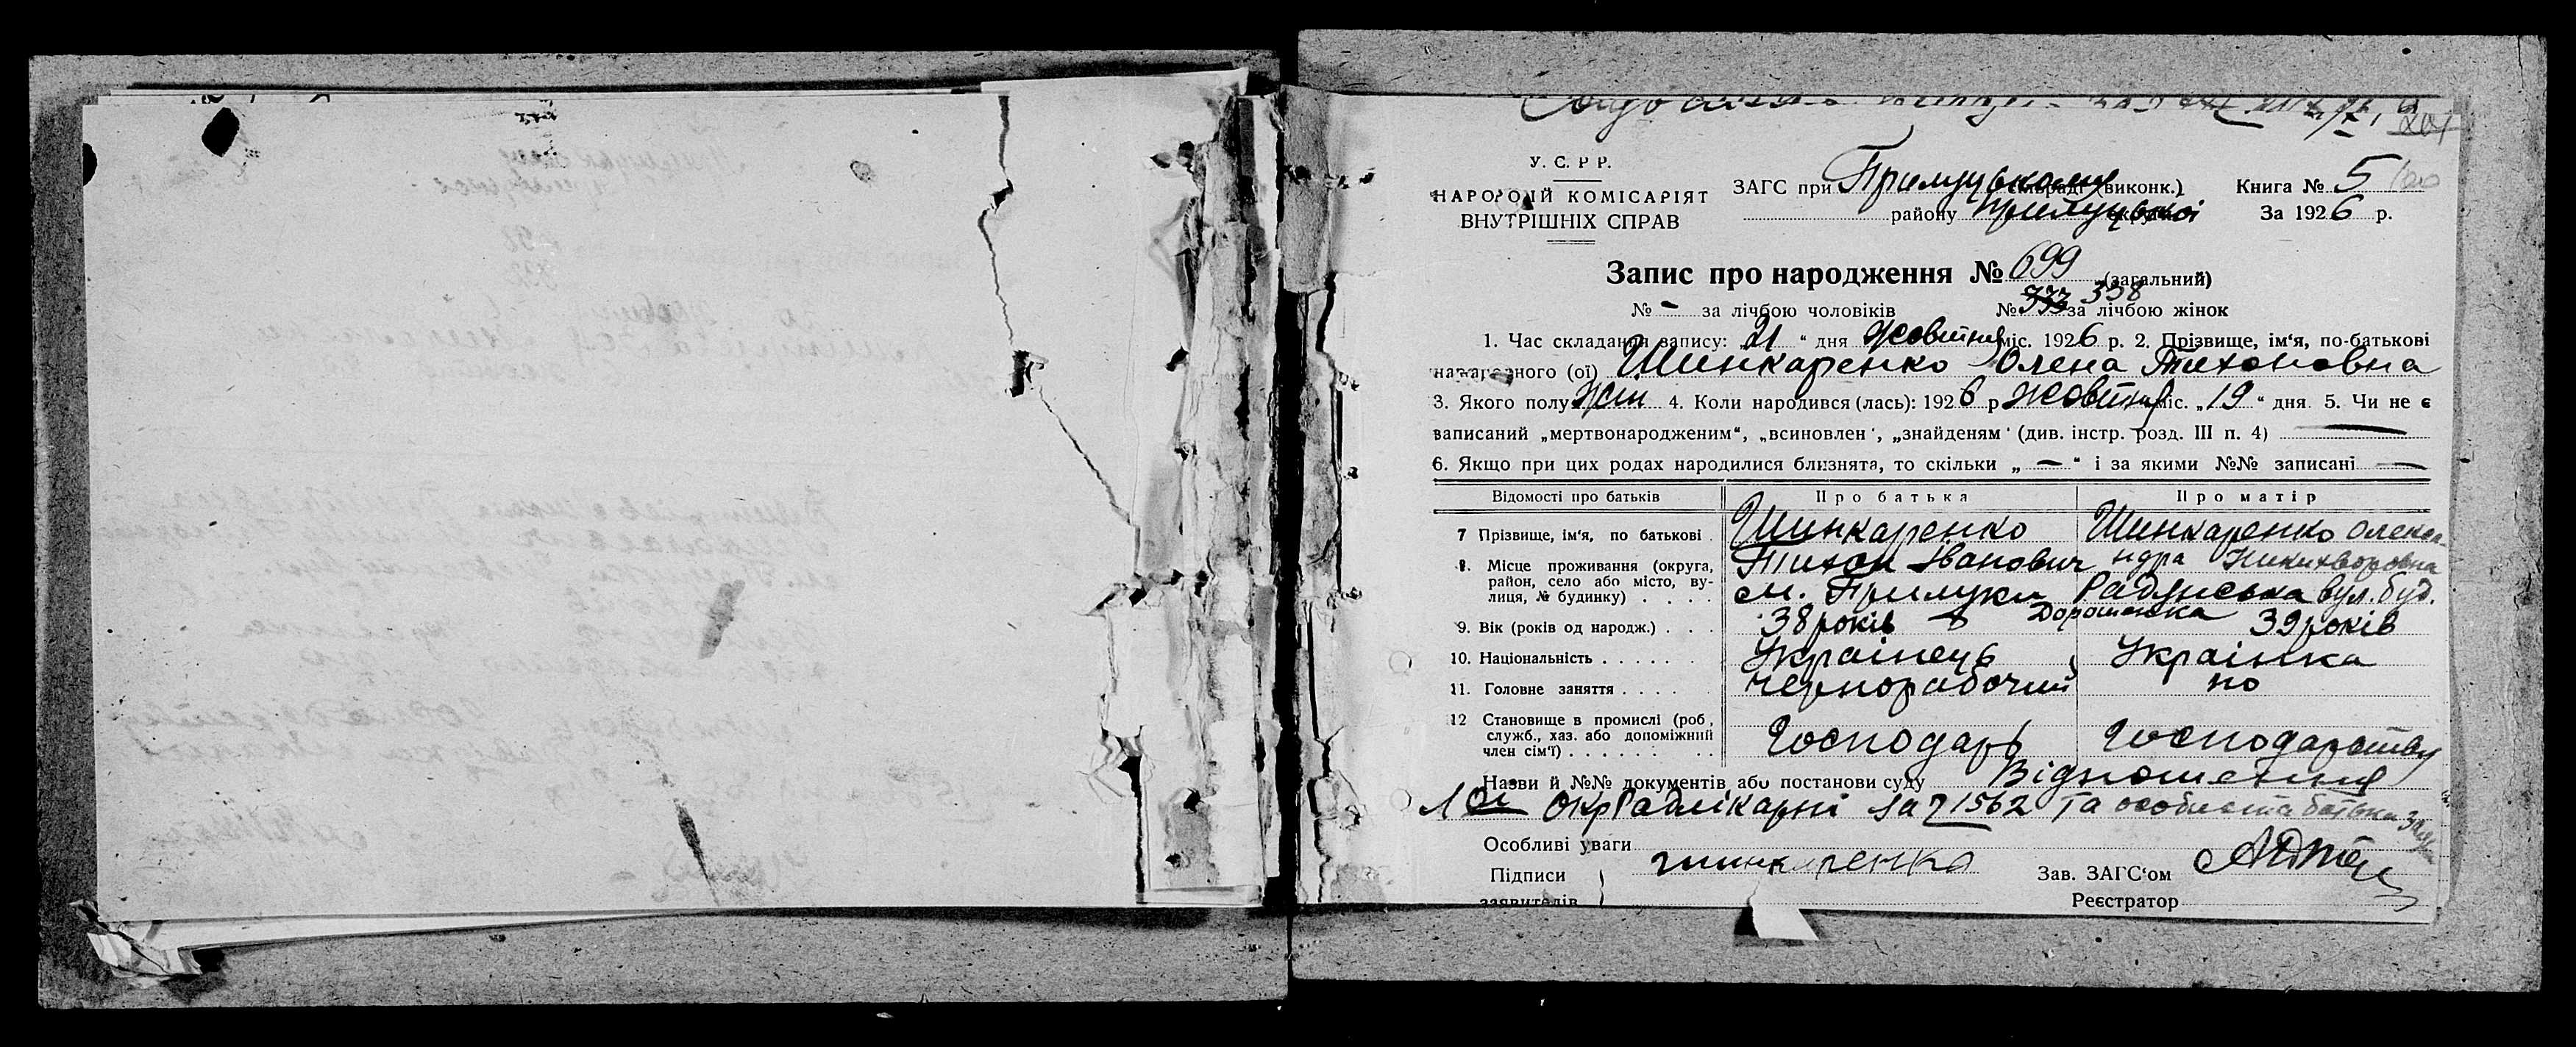 201
У. С. Р Р.
НАРОДНІЙ КОМІСАРІЯТ
ВНУТРІШНІХ СПРАВ
ЗАГС при Прилуцькому сільраді (виконк.)
району Прилуцької округи
Книга № 5
За 1926 р.
Запис про народження № 699 (загальний)
№ - за лічбою чоловіків № 333 338 за лічбою жінок
1. Час складання запису: „21" дня Жовтня міс. 1926 р. 2. Прізвище, ім'я, по-батькові
народженого (ої) Шинкаренко Олена Тихоновна
3. Якого полу жін 4. Коли народився (лась): 1926 р Жовтня міс. „19" дня. 5. Чи не є
записаний „мертвонародженим", „всиновлен', „знайденям' (див. інстр. розд. III п. 4) —
6. Якщо при цих родах народилися близнята, то скільки „—" і за якими №№ записані —
Відомості про батьків Про батька Про матір
7 Прізвище, ім'я, по батькові . Шинкаренко Тихон Іванович Шинкаренко Олександра Никихворовна
8. Місце проживання (округа, район, село або місто, вулиця, № будинку) . . . . м. Прилуки Радянська вул. буд. Дорошенка
9. Вік (років од народж.) . . . 38 років 39 років
10. Національність . . . . . . Українець Українка
11. Головне заняття . . . . Чернорабочий по
12 Становище в промислі (роб., служб., хаз. або допоміжний член сім'ї) . . . . . . . Господарь Господарству
Назви й №№ документів або постанови суду Відношення
1ої ОкрРадлікарні за № 1562 та особиста батька заява
Особливі уваги
Підписи
заявителів
шинкаренко
Зав. ЗАГС'ом
Реєстратор